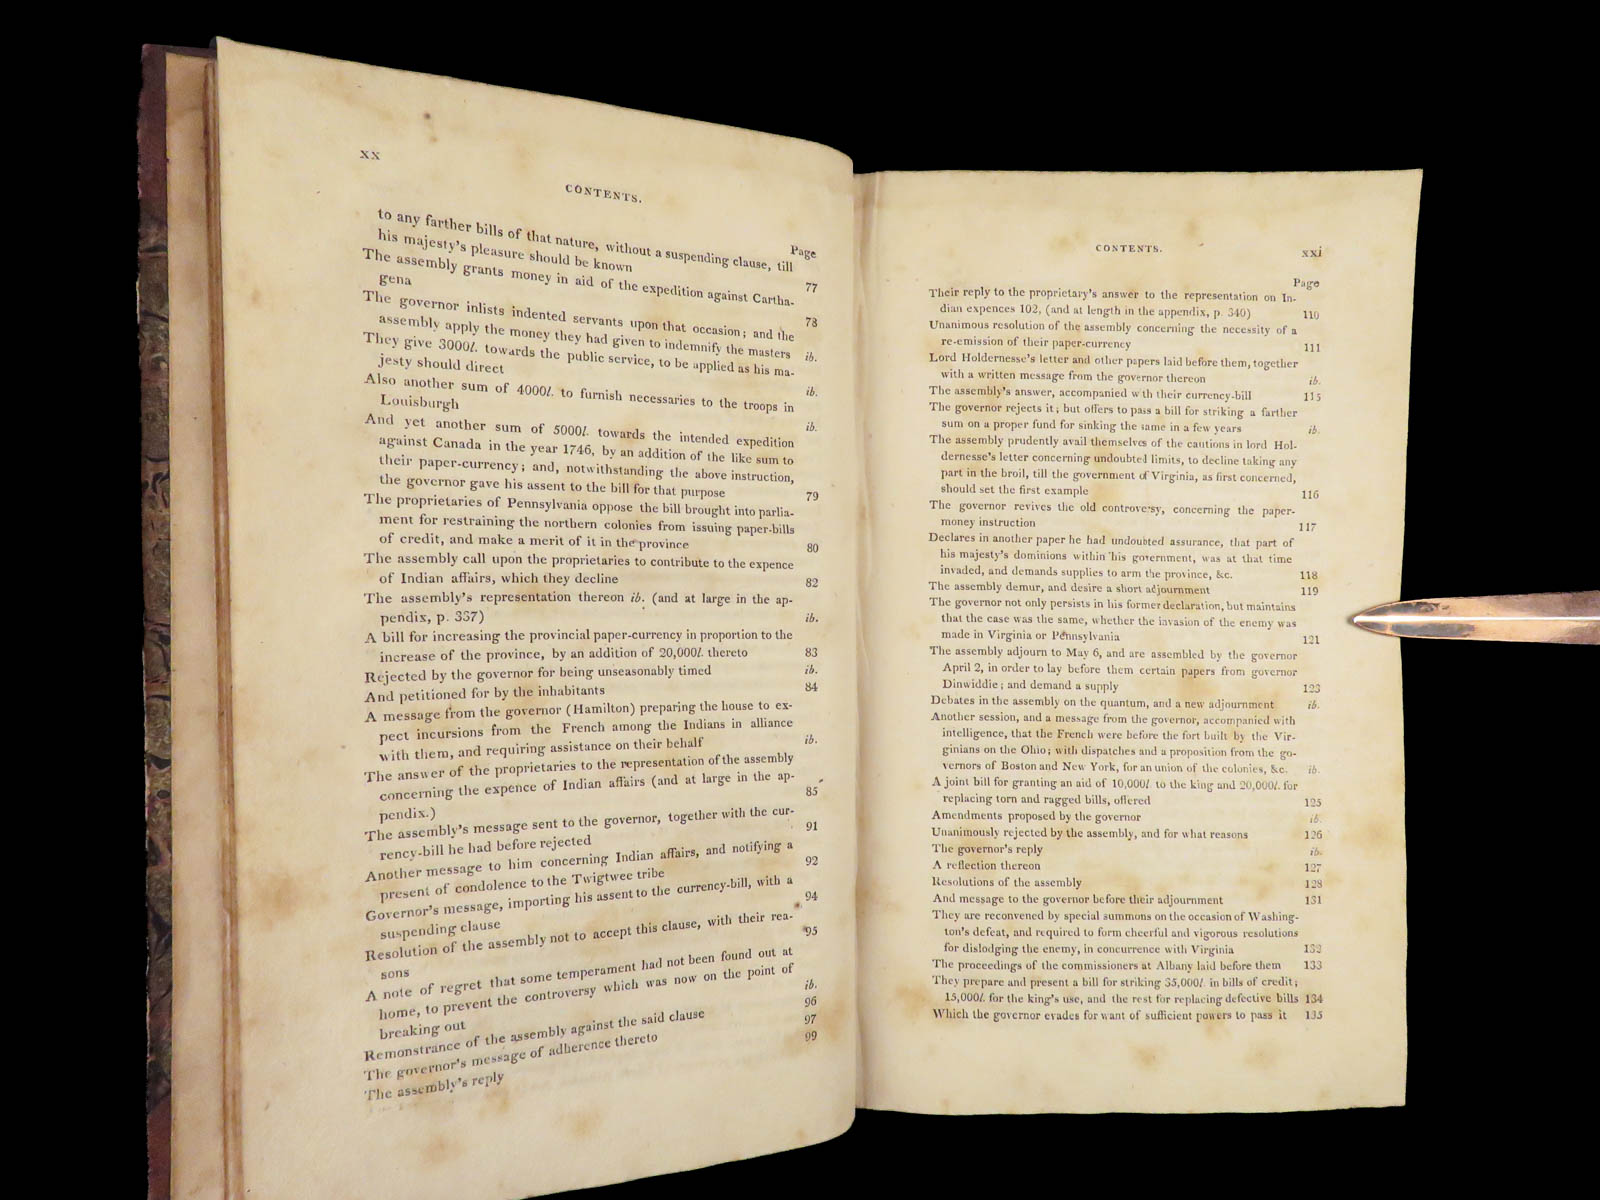 xx
CONTENTS.
Page
to any farther bills of that nature, without a suspending clause, till
his majesty's pleasure should be known 77
The assembly grants money in aid of the expedition against Cartha-
gena 78
The governor inlists indented servants upon that occasion; and the
assembly apply the money they had given to indemnify the masters ib.
They give 3000l. towards the public service, to be applied as his ma-
jesty should direct ib.
Also another sum of 4000l. to furnish necessaries to the troops in
Louisburgh ib.
And yet another sum of 5000l. towards the intended expedition
against Canada in the year 1746, by an addition of the like sum to
their paper-currency; and, notwithstanding the above instruction,
the governor gave his assent to the bill for that purpose 79
The proprietaries of Pennsylvania oppose the bill brought into parlia-
ment for restraining the northern colonies from issuing paper-bills
of credit, and make a merit of it in the province 80
The assembly call upon the proprietaries to contribute to the expence
of Indian affairs, which they decline 82
The assembly's representation thereon ib. (and at large in the ap-
pendix, p. 337) ib.
A bill for increasing the provincial paper-currency in proportion to the
increase of the province, by an addition of 20,000l. thereto 83
Rejected by the governor for being unseasonably timed ib.
And petitioned for by the inhabitants 84
A message from the governor (Hamilton) preparing the house to ex-
pect incursions from the French among the Indians in alliance
with them, and requiring assistance on their behalf ib.
The answer of the proprietaries to the representation of the assembly
concerning the expence of Indian affairs (and at large in the ap-
pendix.) 85
The assembly's message sent to the governor, together with the cur-
rency-bill he had before rejected 91
Another message to him concerning Indian affairs, and notifying a
present of condolence to the Twigtwee tribe 92
Governor's message, importing his assent to the currency-bill, with a
suspending clause 94
Resolution of the assembly not to accept this clause, with their rea-
sons 95
A note of regret that some temperament had not been found out at
home, to prevent the controversy which was now on the point of
breaking out ib.
Remonstrance of the assembly against the said clause 96
The governor's message of adherence thereto 97
The assembly's reply 99
CONTENTS.
xxi
Page
Their reply to the proprietary's answer to the representation on In-
dian expences 102, (and at length in the appendix, p. 340) 110
Unanimous resolution of the assembly concerning the necessity of a
re-emission of their paper-currency 111
Lord Holdernesse's letter and other papers laid before them, together
with a written message from the governor thereon ib.
The assembly's answer, accompanied with their currency-bill 115
The governor rejects it; but offers to pass a bill for striking a farther
sum on a proper fund for sinking the same in a few years ib.
The assembly prudently avail themselves of the cautions in lord Hol-
dernesse's letter concerning undoubted limits, to decline taking any
part in the broil, till the government of Virginia, as first concerned,
should set the first example 116
The governor revives the old controversy, concerning the paper-
money instruction 117
Declares in another paper he had undoubted assurance, that part of
his majesty's dominions within his government, was at that time
invaded, and demands supplies to arm the province, &c. 118
The assembly demur, and desire a short adjournment 119
The governor not only persists in his former declaration, but maintains
that the case was the same, whether the invasion of the enemy was
made in Virginia or Pennsylvania 121
The assembly adjourn to May 6, and are assembled by the governor
April 2, in order to lay before them certain papers from governor
Dinwiddie; and demand a supply 123
Debates in the assembly on the quantum, and a new adjournment ib.
Another session, and a message from the governor, accompanied with
intelligence, that the French were before the fort built by the Vir-
ginians on the Ohio; with dispatches and a proposition from the go-
vernors of Boston and New York, for an union of the colonies, &c. ib.
A joint bill for granting an aid of 10,000l. to the king and 20,000l. for
replacing torn and ragged bills, offered 125
Amendments proposed by the governor ib.
Unanimously rejected by the assembly, and for what reasons 126
The governor's reply ib.
A reflection thereon 127
Resolutions of the assembly 128
And message to the governor before their adjournment 131
They are reconvened by special summons on the occasion of Washing-
ton's defeat, and required to form cheerful and vigorous resolutions
for dislodging the enemy, in concurrence with Virginia 132
The proceedings of the commissioners at Albany laid before them 133
They prepare and present a bill for striking 35,000l. in bills of credit;
15,000l. for the king's use, and the rest for replacing defective bills 134
Which the governor evades for want of sufficient powers to pass it 135